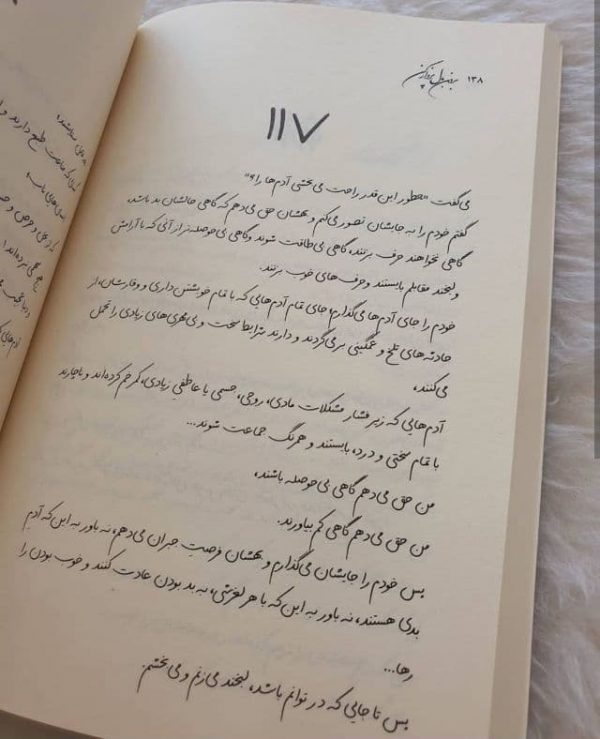 ۱۳۸
۱۱۷
می‌گفت "چطور این قدر راحت می‌بخشی آدم‌ها را؟"
گفتم خودم را به جایشان تصور می‌کنم و بهشان حق می‌دهم که گاهی حالشان بد باشد،
گاهی نخواهند حرف بزنند، گاهی بی‌طاقت شوند و گاهی بی‌حوصله‌تر از آنی که با آرامش
و لبخند مقابلم بایستند و حرف‌های خوب بزنند.
خودم را جای آدم‌ها می‌گذارم، جای تمام آدم‌هایی که با تمام خویشتن‌داری و وقارشان، از
حادثه‌های تلخ و غمگینی برمی‌گردند و دارند شرایط سخت و بی‌مهری‌های زیادی را تحمل
می‌کنند،
آدم‌هایی که زیر فشار مشکلات مادی، روحی، جسمی یا عاطفیِ زیادی، کمر خم کرده‌اند و ناچارند
با تمام سختی و درد، بایستند و همرنگ جماعت شوند...
من حق می‌دهم گاهی بی‌حوصله باشند،
من حق می‌دهم گاهی کم بیاورند.
پس خودم را جایشان می‌گذارم و بهشان فرصت جبران می‌دهم، نه باور به این که آدم
بدی هستند، نه باور به این که با هر لغزشی، به بد بودن عادت کنند و خوب بودن را
رها...
پس تا جایی که در توانم باشد، لبخند می‌زنم و می‌بخشم.